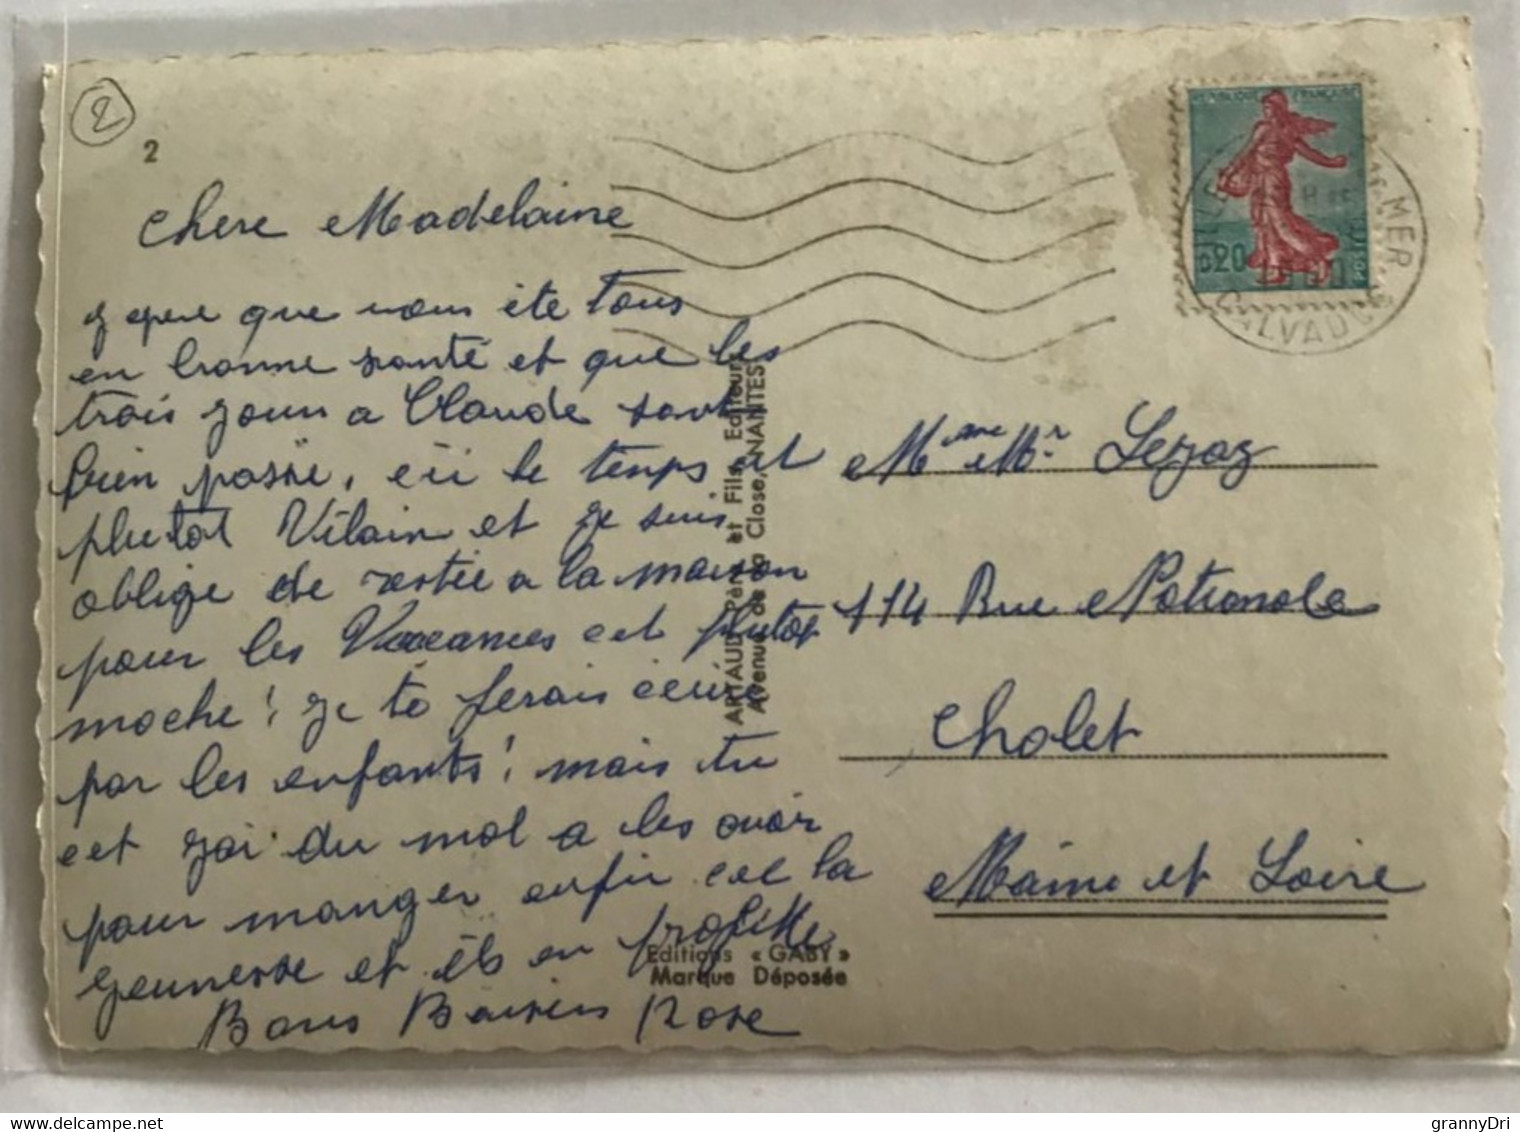 2
2
Chere Madelaine
que vous ete tous
en bonne santé et que les
trois jours a Claude sont
bien passé, ici le temps et
plutot Vilain et je suis
oblige de restée a la maison
pour les Vacances cet plutot
moche! je te ferais écrire
par les enfants! mais tu
cet j'ai du mal a les avoir
pour manger enfin cet la
jeunesse et ils en profitte
Bons Baisers Rose
ARTAUD Père et Fils, Editeurs
Avenue de la Close, NANTES
Editions « GABY »
Marque Déposée
REPUBLIQUE FRANÇAISE
0,20
POSTES
MER
CALVADOS
Mme Mr
114 Rue Nationale
Cholet
Maine et Loire
delcampe.net
grannyDri